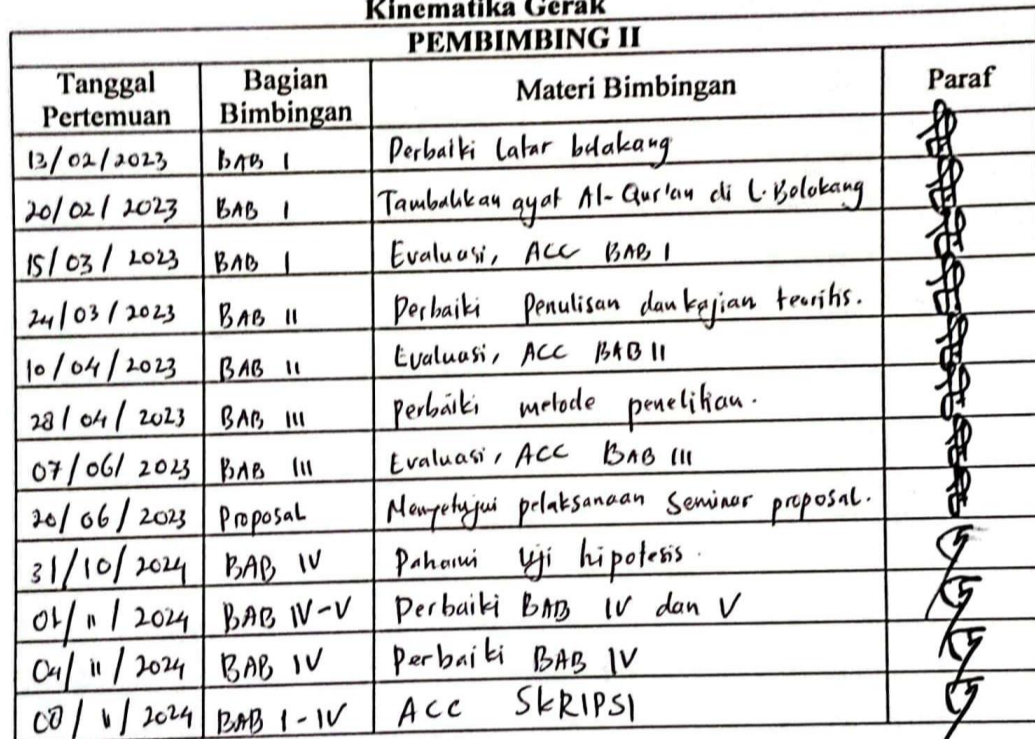 Kinematika Gerak
PEMBIMBING II
Tanggal Pertemuan Bagian Bimbingan Materi Bimbingan Paraf
13/02/2023 BAB I Perbaiki Latar belakang
20/02/2023 BAB I Tambahkan ayat Al-Qur'an di L. Belakang
15/03/2023 BAB I Evaluasi, ACC BAB I
24/03/2023 BAB II Perbaiki Penulisan dan kajian teoritis.
10/04/2023 BAB II Evaluasi, ACC BAB II
28/04/2023 BAB III Perbaiki metode penelitian.
07/06/2023 BAB III Evaluasi, ACC BAB III
20/06/2023 Proposal Menyetujui pelaksanaan Seminar proposal.
31/10/2024 BAB IV Pahami Uji hipotesis.
01/11/2024 BAB IV-V Perbaiki BAB IV dan V
04/11/2024 BAB IV Perbaiki BAB IV
08/11/2024 BAB I-IV ACC SKRIPSI